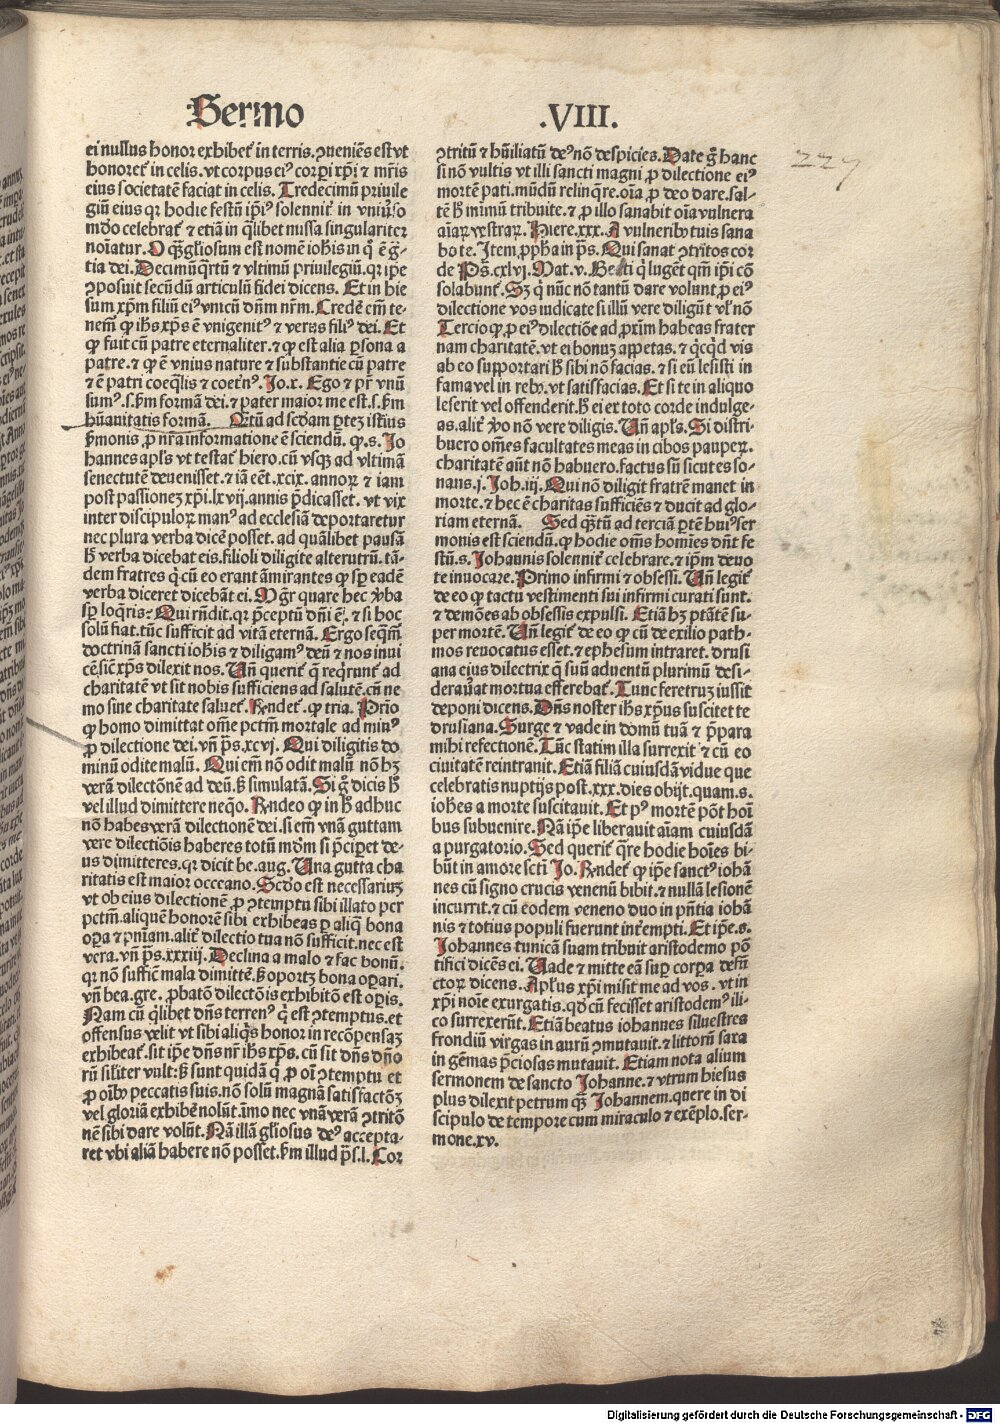 Sermo
.VIII.
227
ei nullus honor exhibet᷑ in terris. ꝯueniēs est vt
honoret᷑ in celis. vt corpus eiꝰ corpꝛi xp̄i ⁊ mr̄is
eius societatē faciat in celis. Tredecimū priuile
giū eius qꝛ hodie festū ip̄iꝰ solennit᷑ in vniu᷑so
mūdo celebrat᷑ ⁊ etiā in q̄libet missa singulariter
noīatur. O qꝫ gl̄iosum est nomē ioh̄is in q̄ ē gr̄
tia dei. Decimūq̄rtū ⁊ vltimū priuilegiū. qꝛ ip̄e
ꝯposuit secūdū articulū fidei dicens. Et in hie
sum xp̄m filiū eiꝰ vnicū dn̄m nr̄m. Credēs em̄ te-
nem᷑ ꝙ ih̄s xp̄s ē vnigenitꝰ ⁊ verus filiꝰ dei. Et
ꝙ fuit cū patre eternaliter. ⁊ ꝙ est alia ꝑsona a
patre. ⁊ ꝙ ē vnius nature ⁊ substantie cū patre
⁊ ē patri coeq̄lis ⁊ coet᷑nꝰ. Jo.x. Ego ⁊ pr̄ vnū
sumꝰ. s. ẜm formā dei. ⁊ pater maior me est. s. ẜm
hūanitatis formā. Q̄tū ad scd̄am ꝑtez istius
ẜmonis ꝓ nr̄a informatione ē sciendū. ꝙ. s. Jo
hannes apl̄s vt testat᷑ hiero. cū vsqꝫ ad vltimā
senectutē deuenisset. ⁊ iā eēt. xcix. annoꝝ ⁊ iam
post passionez xp̄i. lxvij. annis p̄dicasset. vt vix
inter discipuloꝝ manꝰ ad ecclesiā deportaretur
nec plura verba dicē posset. ad quālibet pausā
h̄ verba dicebat eis. filioli diligite alterutrū. tā-
dem fratres q̄ cū eo erant āmirantes ꝙ sꝑ eadē
verba diceret dicebāt ei. Mḡr quare hec ꝟba
sꝑ loq̄ris: Qui rn̄dit. qꝛ p̄ceptū dn̄i ē. ⁊ si hoc
solū fiat. tūc sufficit ad vitā eternā. Ergo seq̄m᷑
doctrinā sancti ioh̄is ⁊ diligamꝰ deū ⁊ nos inui
cē. sic̄ xp̄s dilexit nos. Vn̄ querit᷑ q̄ req̄runt᷑ ad
charitatē vt sit nobis sufficiens ad salutē. cū ne
mo sine charitate saluet᷑. Rn̄det᷑. ꝙ tria. Prīo
ꝙ homo dimittat om̄e pctm̄ mortale ad minꝰ
ꝓ dilectione dei. vn̄ p̄s. xcvj. Qui diligitis do
minū odite malū. Qui em̄ nō odit malū nō hꝫ
verā dilectōnē ad deū. ẜ simulatā. Si g̊ dicis h̄
vel illud dimittere neq̄o. Rn̄deo ꝙ in h̄ adhuc
nō habes verā dilectionē dei. si em̄ vnā guttam
vere dilectiōis haberes totū mūdm̄ si p̄ciꝑet de-
us dimitteres. qꝛ dicit be. aug. Una gutta cha
ritatis est maior occeano. Scd̄o est necessariuꝫ
vt ob eius dilectionē ꝓ ꝯtemptu sibi illato per
pctm̄. aliquē honorē sibi exhibeas ꝑ aliq̄ bona
oꝑa ⁊ pn̄iam. alit᷑ dilectio tua nō sufficit. nec est
vera. vn̄ p̄s. xxxiij. Declina a malo ⁊ fac bonū.
qꝛ nō suffic̄ mala dimittē. ẜ oportꝫ bona oꝑari.
vn̄ bea. gre. ꝓbatō dilectōis exhibitō est oꝑis.
Nam cū q̄libet dn̄s terrenꝰ q̄ est ꝯtemptus. et
offensus velit vt sibi aliq̄s honor in recōpensaꝫ
exhibeat᷑. sit ip̄e dn̄s nr̄ ih̄s xp̄s. cū sit dn̄s dn̄o
rū siliter vult: ẜ sunt quidā q̄ ꝓ oī ꝯtemptu et
ꝓ oībꝰ peccatis suis. nō solū magnā satisfactōꝫ
vel gloriā exhibē nolūt. īmo nec vnā verā ꝯtritō
nē sibi dare volūt. Nā illā gl̄iosus deꝰ accepta-
ret vbi aliā habere nō posset. ẜm illud p̄s. l. Cor
ꝯtritū ⁊ hūiliatū deꝰ nō despicies. Date g̊ hanc
si nō vultis vt illi sancti magni ꝓ dilectione eiꝰ
mortē pati. mūdū relinq̄re. oīa ꝓ deo dare. sal-
tē h̄ mimū tribuite. ⁊ ꝓ illo sanabit oīa vulnera
aīaꝝ vestraꝝ. Hiere. xxx. A vulneribꝰ tuis sana
bo te. Item ꝓph̄a in p̄s. Qui sanat ꝯtritos cor
de Ps̄. cxlvj. Mat. v. Beati q̄ luget᷑ qm̄ ip̄i cō
solabunt᷑. Sꝫ q̄ nūc nō tantū dare volunt ꝓ eiꝰ
dilectione vos iudicate si illū vere diligūt vl̄ nō
Tercio ꝙ ꝓ eiꝰ dilectiōe ad ꝓxim̄ habeas frater
nam charitatē. vt ei bonuꝫ appetas. ⁊ q̄cq̄d vis
ab eo supportari h̄ sibi nō facias. ⁊ si eū lesisti in
fama vel in rebꝰ. vt satisfacias. Et si te in aliquo
leserit vel offenderit. h̄ ei ex toto corde indulge-
as. alit᷑ ꝟo nō vere diligis. Vn̄ apl̄s. Si distri-
buero om̄es facultates meas in cibos pauꝑeꝝ.
charitatē aūt nō habuero. factus sū sicut es so-
nans. j. Joh. iij. Qui nō diligit fratrē manet in
morte. ⁊ hec ē charitas sufficiēs ⁊ ducit ad glo-
riam eternā. Sed qꝫtū ad terciā ꝑtē huiꝰ ser
monis est sciendū. ꝙ hodie om̄s homīes dn̄t fe
stū. s. Johannis solennit᷑ celebrare. ⁊ ip̄m deuo
te inuocare. Primo infirmi ⁊ obsessi. Vn̄ legit᷑
de eo ꝙ tactu vestimenti sui infirmi curati sunt.
⁊ demōes ab obsessis expulsi. Etiā hꝫ ptātē su-
per mortē. Vn̄ legit᷑ de eo ꝙ cū de exilio path-
mos reuocatus esset. ⁊ ephesum intraret. drusi
ana eius dilectrix q̄ suū aduentū plurimū desi-
derauat mortua efferebat᷑. Tunc feretruꝫ iussit
deponi dicens. Dn̄s noster ih̄s xp̄us suscitet te
drusiana. Surge ⁊ vade in domū tuā ⁊ p̄para
mihi refectionē. Tūc statim illa surrexit ⁊ cū eo
ciuitatē reintrauit. Etiā filiā cuiusdā vidue que
celebratis nuptijs post. xxx. dies obijt. quam. s.
ioh̄es a morte suscitauit. Et pꝰ mortē pōt hoī
bus subuenire. Nā ip̄e liberauit aīam cuiusdā
a purgatorio. Sed querit᷑ q̄re hodie hoīes bi-
būt in amore scti Jo. Rn̄det᷑ ꝙ ip̄e sanctꝰ iohā
nes cū signo crucis venenū bibit. ⁊ nullā lesionē
incurrit. ⁊ cū eodem veneno duo in pn̄tia iohā
nis ⁊ totius populi fuerunt int᷑empti. Et ip̄e. s.
Johannes tunicā suam tribuit aristodemo pō
tifici dicēs ei. Vade ⁊ mitte eā suꝑ corꝑa defū
ctoꝝ dicens. Apl̄us xp̄i misit me ad vos. vt in
xp̄i noīe exurgatis. qd̄ cū fecisset aristodemꝰ ili-
co surrexerūt. Etiā beatus iohannes siluestres
frondiū virgas in aurū ꝯmutauit. ⁊ littorū saxa
in gēmas p̄ciosas mutauit. Etiam nota alium
sermonem de sancto Johanne. ⁊ vtrum hiesus
plus dilexit petrum qꝫ Johannem. quere in di
scipulo de tempore cum miraculo ⁊ exēplo. ser-
mone. xv.
Digitalisierung gefördert durch die Deutsche Forschungsgemeinschaft - DFG